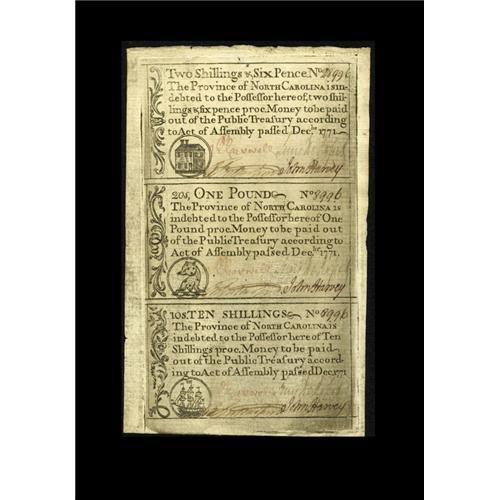 Two Shillings & Six Pence. No 8996
The Province of North Carolina is in-
debted to the Possessor hereof, two shil-
lings & six pence proc. Money to be paid
out of the Public Treasury according
to Act of Assembly passed Decbr. 1771.
John Harvey
20s, One Pound No 8996
The Province of North Carolina is
indebted to the Possessor here of One
Pound proc. Money to be paid out
of the Public Treasury according to
Act of Assembly passed Decbr. 1771.
John Harvey
10s. Ten Shillings No 8996
The Province of North Carolina is
indebted to the Possessor here of Ten
Shillings proc. Money to be paid
out of the Public Treasury accord-
ing to Act of Assembly passed Dec. 1771
John Harvey